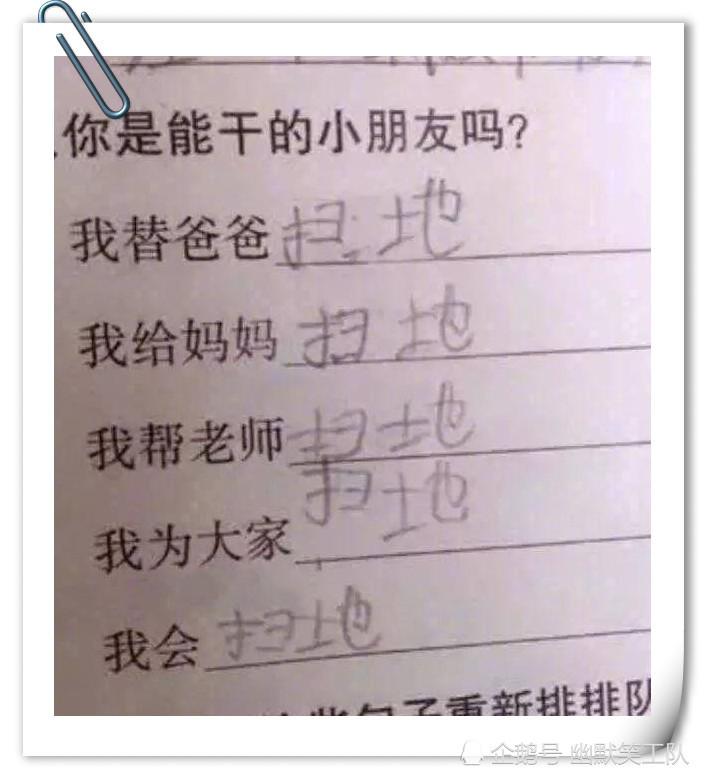 你是能干的小朋友吗?
我替爸爸扫地
我给妈妈扫地
我帮老师扫地
我为大家扫地
我会扫地
句子重新排排队
企鹅号 幽默笑工队